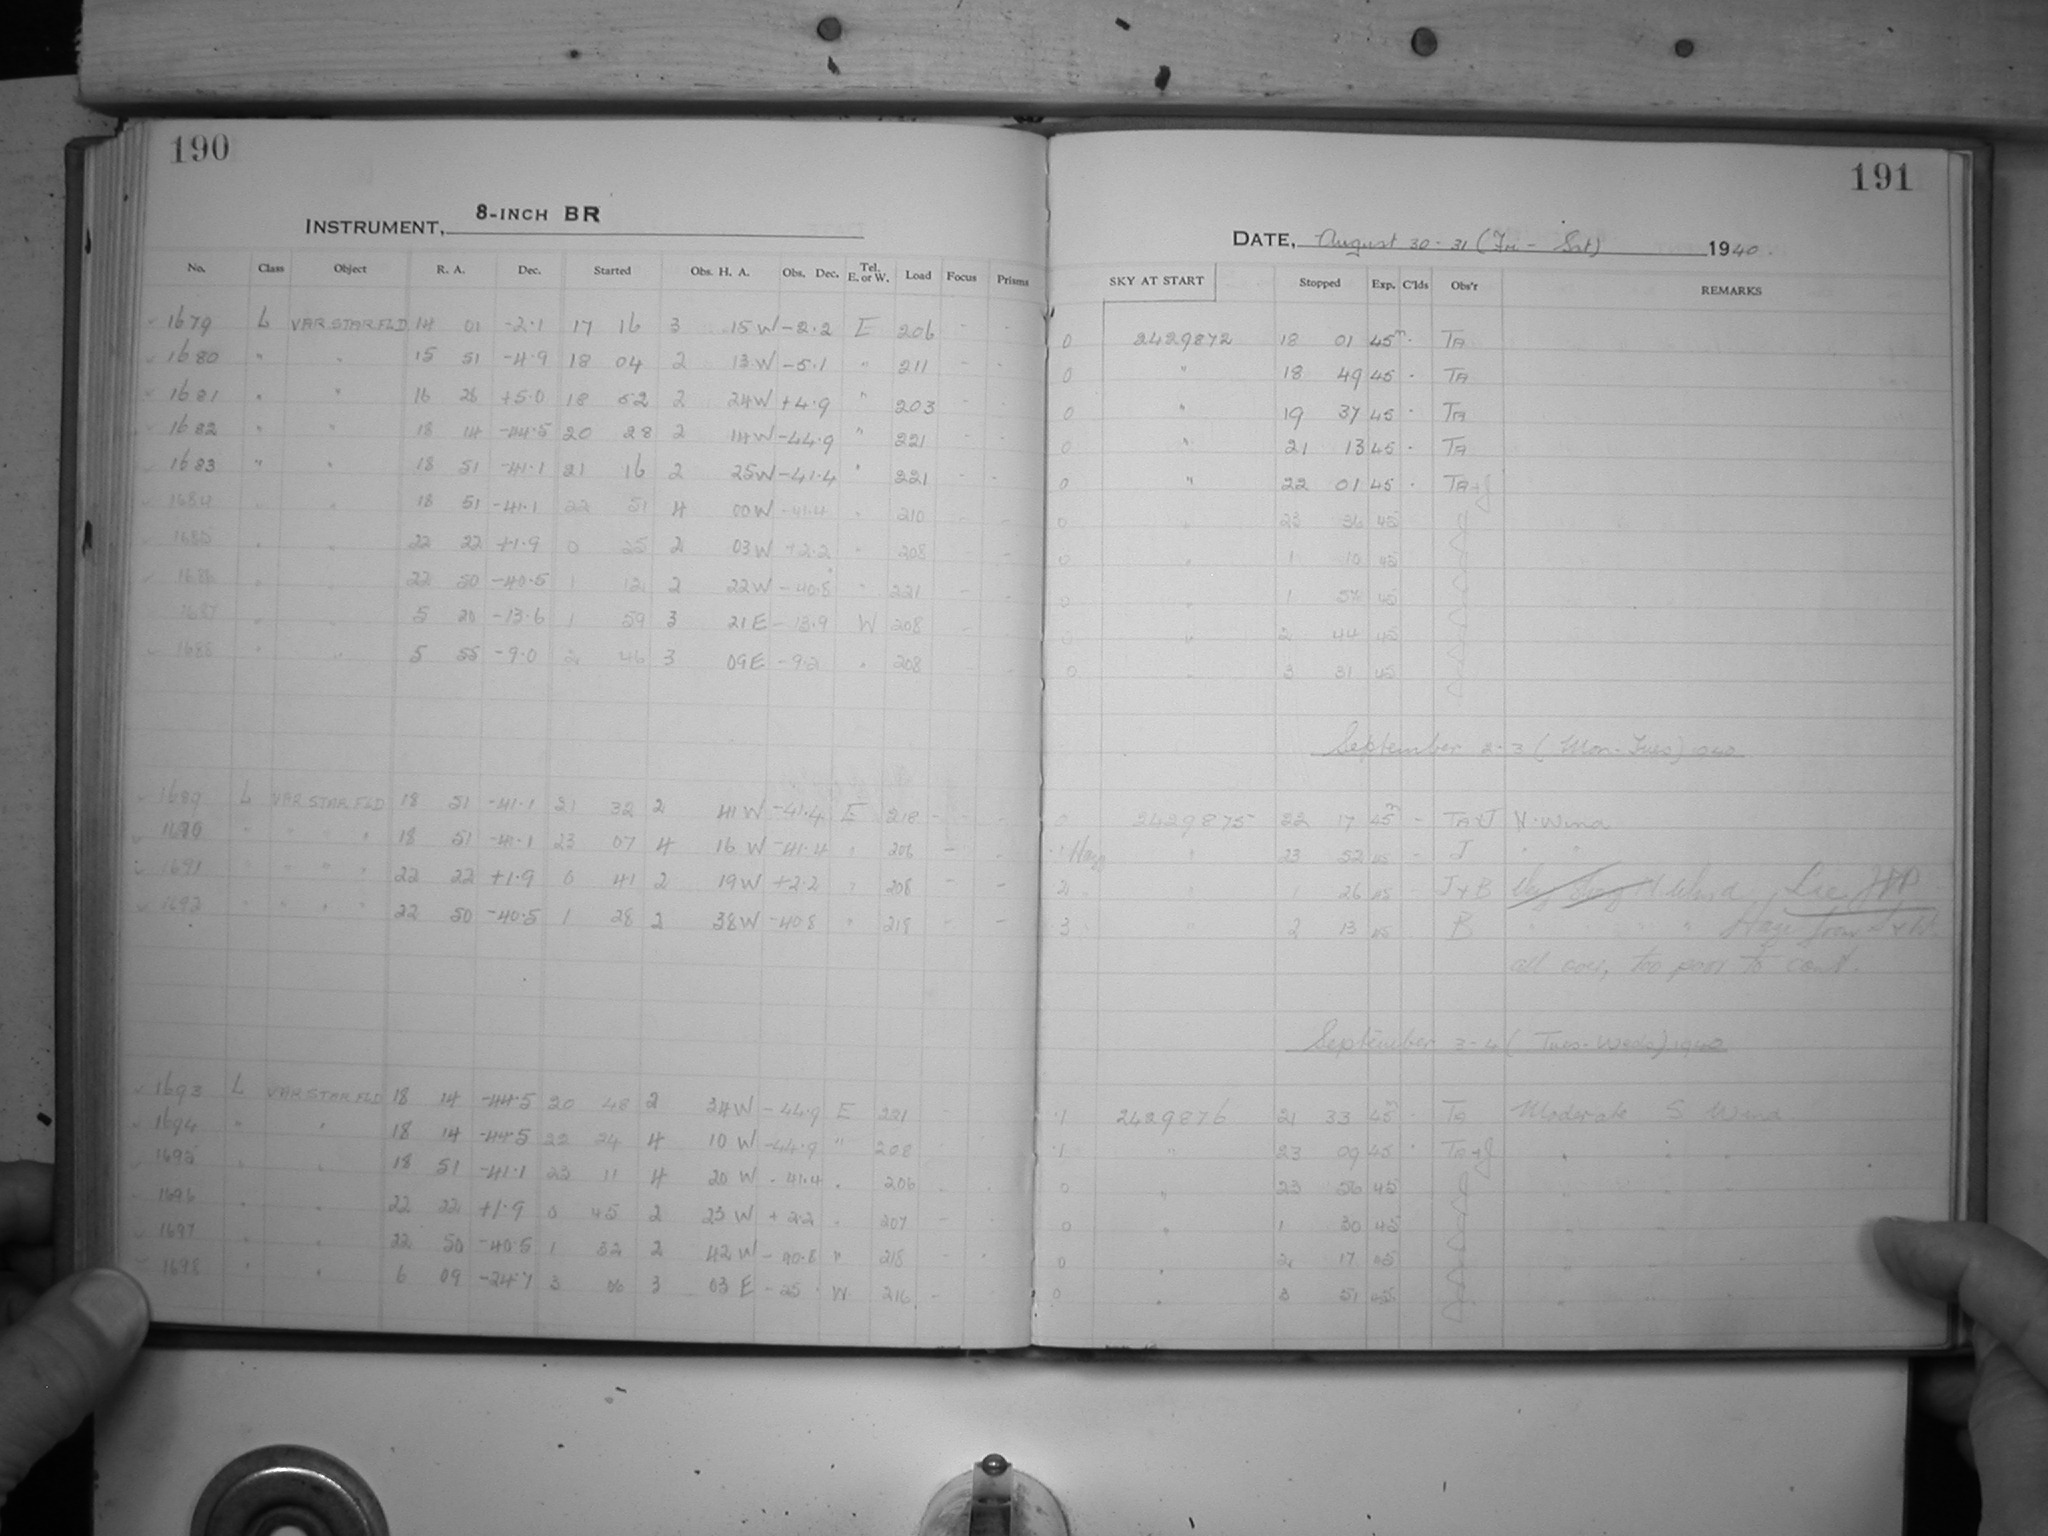 190
8-INCH BR
INSTRUMENT,
No. Class Object R. A. Dec. Started Obs. H. A. Obs. Dec. Tel. E. or W. Load Focus Prisms
1679 L VAR STAR FLD 14 01 -2.1 17 16 3 15 W -2.2 E 206 - -
1680 " " 15 51 -4.9 18 04 2 13 W -5.1 " 211 - -
1681 " " 16 26 +5.0 18 52 2 24 W +4.9 " 203 - -
1682 " " 18 14 -44.5 20 28 2 14 W -44.9 " 221 - -
1683 " " 18 51 -41.1 21 16 2 25 W -41.4 " 221 - -
1684 " " 18 51 -41.1 22 51 4 00 W -41.4 " 210 - -
1685 " " 22 22 +1.9 0 25 2 03 W +2.2 " 208 - -
1686 " " 22 50 -40.5 1 12 2 22 W -40.8 " 221 - -
1687 " " 5 20 -13.6 1 59 3 21 E -13.9 W 208 -
1688 " " 5 55 -9.0 2 46 3 09 E -9.2 " 208 - -
1689 L VAR STAR FLD 18 51 -41.1 21 32 2 41 W -41.4 E 218 - -
1690 " " " " 18 51 -41.1 23 07 4 16 W -41.4 " 206 - -
1691 " " " " 22 22 +1.9 0 41 2 19 W +2.2 " 208 - -
1692 " " " " 22 50 -40.5 1 28 2 38 W -40.8 " 218 - -
1693 L VAR STAR FLD 18 14 -44.5 20 48 2 34 W -44.9 E 221
1694 " " 18 14 -44.5 22 24 4 10 W -44.9 " 208
1695 " " 18 51 -41.1 23 11 4 20 W -41.4 " 206
1696 " " 22 22 +1.9 0 45 2 23 W +2.2 " 207 -
1697 " " 22 50 -40.5 1 32 2 42 W -40.8 " 218 -
1698 " " 6 09 -24.7 3 06 3 03 E -25 W 216 -
191
DATE, August 30-31 (Fri - Sat) 1940.
SKY AT START Stopped Exp. C'lds Obs'r REMARKS
0 2429872 18 01 45m . TA
0 " 18 49 45 . TA
0 " 19 37 45 . TA
0 " 21 13 45 . TA
0 " 22 01 45 . TA+J
0 " 23 36 45 J
0 " 1 10 45
0 " 1 57 45
0 " 2 44 45
0 " 3 31 45
September 2-3 (Mon-Tues) 1940
0 2429875 22 17 45m - TA+J N. Wind
.1 Haze " 23 52 45 - J " "
2 " 1 26 45 - J+B N. Wind
3 " 2 13 45 B " " " " Haze from
all over, too poor to cont.
September 3-4 (Tues-Weds) 1940
.1 2429876 21 33 45m - TA Moderate S Wind
.1 " 23 09 45 . TA+J " " "
0 " 23 56 45 J " " "
0 " 1 30 45 " " "
0 " 2 17 45 " " "
0 " 3 51 45 " " "